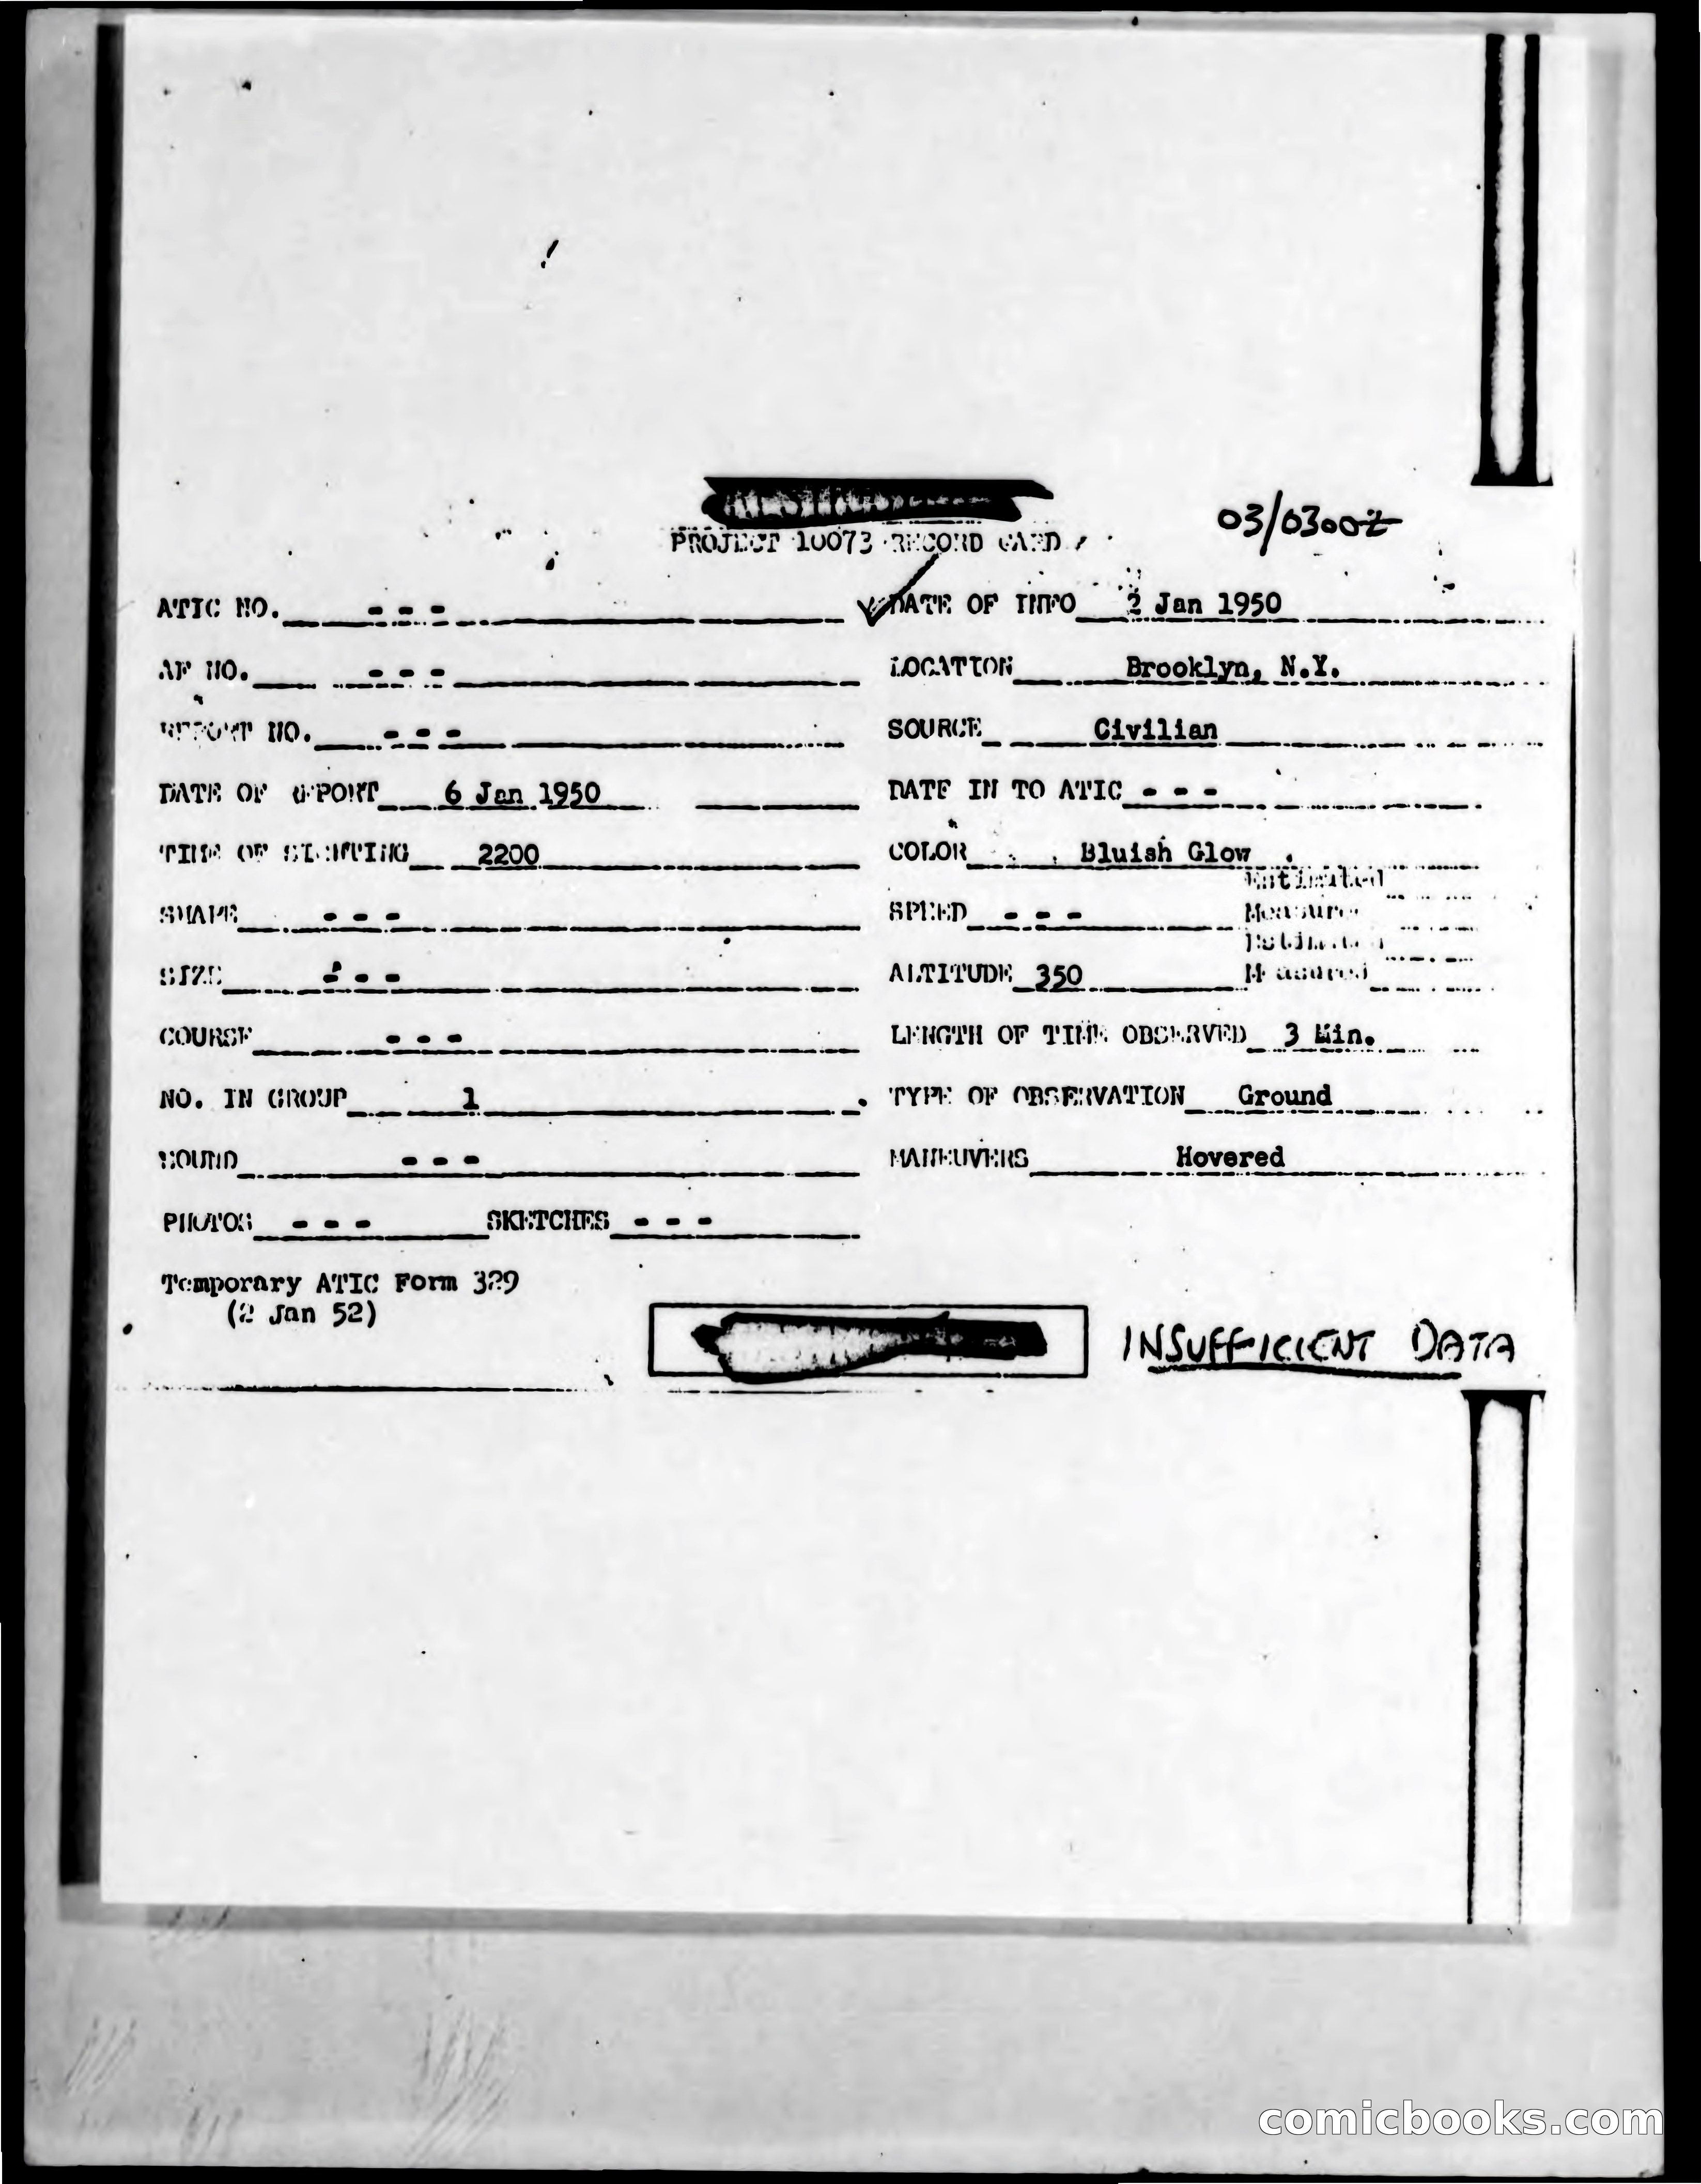 PROJECT 10073 RECORD CARD
03/0300Z
ATIC NO. - - -
DATE OF INFO 2 Jan 1950
AF NO. - - -
LOCATION Brooklyn, N.Y.
REPORT NO. - - -
SOURCE Civilian
DATE OF REPORT 6 Jan 1950
DATE IN TO ATIC - - -
TIME OF SIGHTING 2200
COLOR Bluish Glow
Estimated
SHAPE - - -
SPEED - - - Measured
Estimated
SIZE - - -
ALTITUDE 350 Measured
COURSE - - -
LENGTH OF TIME OBSERVED 3 Min.
NO. IN GROUP 1
TYPE OF OBSERVATION Ground
SOUND - - -
MANEUVERS Hovered
PHOTOS - - - SKETCHES - - -
Temporary ATIC Form 329
(2 Jan 52)
INSUFFICIENT DATA
comicbooks.com